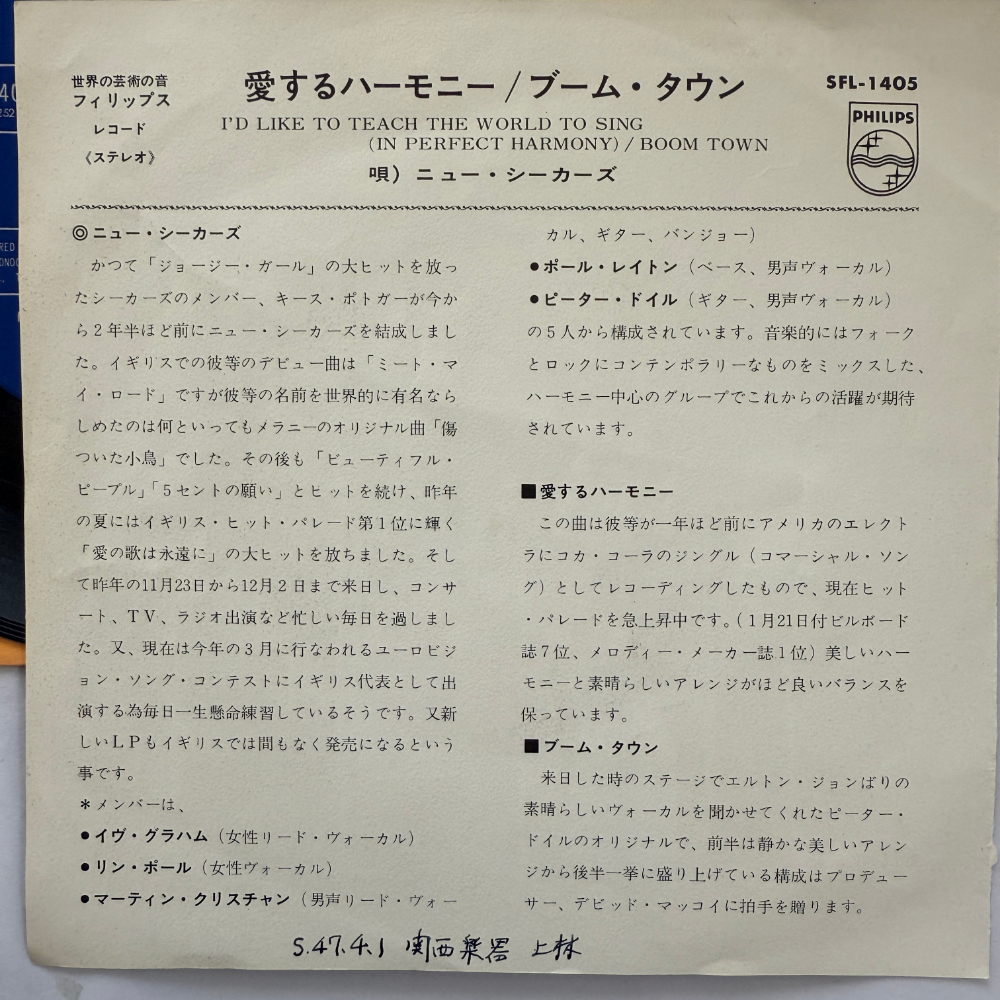 世界の芸術の音
フィリップス
レコード
《ステレオ》
愛するハーモニー/ブーム・タウン
I'D LIKE TO TEACH THE WORLD TO SING
(IN PERFECT HARMONY)/BOOM TOWN
唄）ニュー・シーカーズ
SFL-1405
PHILIPS
◎ニュー・シーカーズ
かつて「ジョージー・ガール」の大ヒットを放っ
たシーカーズのメンバー、キース・ポトガーが今か
ら２年半ほど前にニュー・シーカーズを結成しまし
た。イギリスでの彼等のデビュー曲は「ミート・マ
イ・ロード」ですが彼等の名前を世界的に有名なら
しめたのは何といってもメラニーのオリジナル曲「傷
ついた小鳥」でした。その後も「ビューティフル・
ピープル」「５セントの願い」とヒットを続け、昨年
の夏にはイギリス・ヒット・パレード第１位に輝く
「愛の歌は永遠に」の大ヒットを放ちました。そし
て昨年の11月23日から12月２日まで来日し、コンサ
ート、ＴＶ、ラジオ出演など忙しい毎日を過しまし
た。又、現在は今年の３月に行なわれるユーロビジ
ョン・ソング・コンテストにイギリス代表として出
演する為毎日一生懸命練習しているそうです。又新
しいＬＰもイギリスでは間もなく発売になるという
事です。
＊メンバーは、
●イヴ・グラハム（女性リード・ヴォーカル）
●リン・ポール（女性ヴォーカル）
●マーティン・クリスチャン（男声リード・ヴォー
カル、ギター、バンジョー）
●ポール・レイトン（ベース、男声ヴォーカル）
●ピーター・ドイル（ギター、男声ヴォーカル）
の５人から構成されています。音楽的にはフォーク
とロックにコンテンポラリーなものをミックスした、
ハーモニー中心のグループでこれからの活躍が期待
されています。
■愛するハーモニー
この曲は彼等が一年ほど前にアメリカのエレクト
ラにコカ・コーラのジングル（コマーシャル・ソン
グ）としてレコーディングしたもので、現在ヒット
・パレードを急上昇中です。（１月21日付ビルボード
誌７位、メロディー・メーカー誌１位）美しいハー
モニーと素晴らしいアレンジがほど良いバランスを
保っています。
■ブーム・タウン
来日した時のステージでエルトン・ジョンばりの
素晴らしいヴォーカルを聞かせてくれたピーター・
ドイルのオリジナルで、前半は静かな美しいアレン
ジから後半一挙に盛り上げている構成はプロデュー
サー、デビッド・マッコイに拍手を贈ります。
S.47.4.1 関西楽器 上林